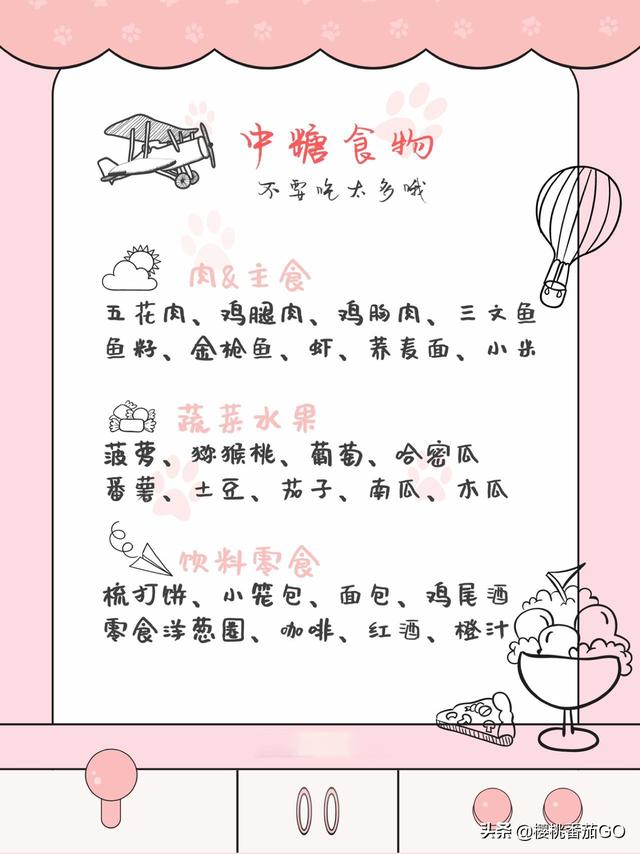 中糖食物
不要吃太多哦
肉&主食
五花肉、鸡腿肉、鸡胸肉、三文鱼
鱼籽、金枪鱼、虾、荞麦面、小米
蔬菜水果
菠萝、猕猴桃、葡萄、哈密瓜
番薯、土豆、茄子、南瓜、木瓜
饮料零食
梳打饼、小笼包、面包、鸡尾酒
零食洋葱圈、咖啡、红酒、橙汁
头条 @樱桃番茄GO